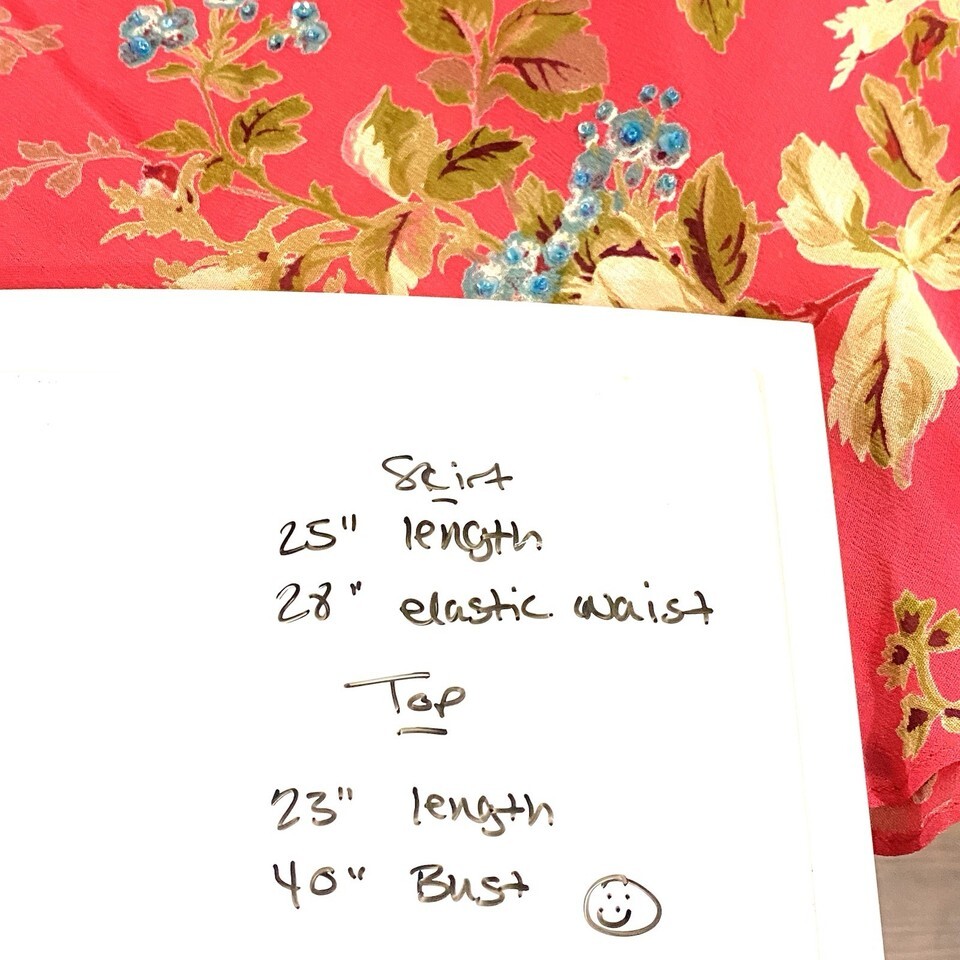 Skirt
25" length
28" elastic waist
Top
23" length
40" Bust